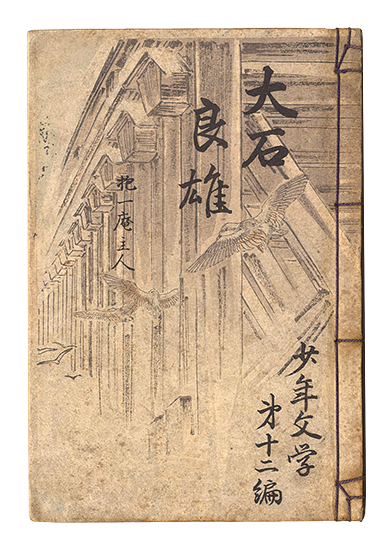 大石
良雄
抱一庵主人
少年文学
第十二編